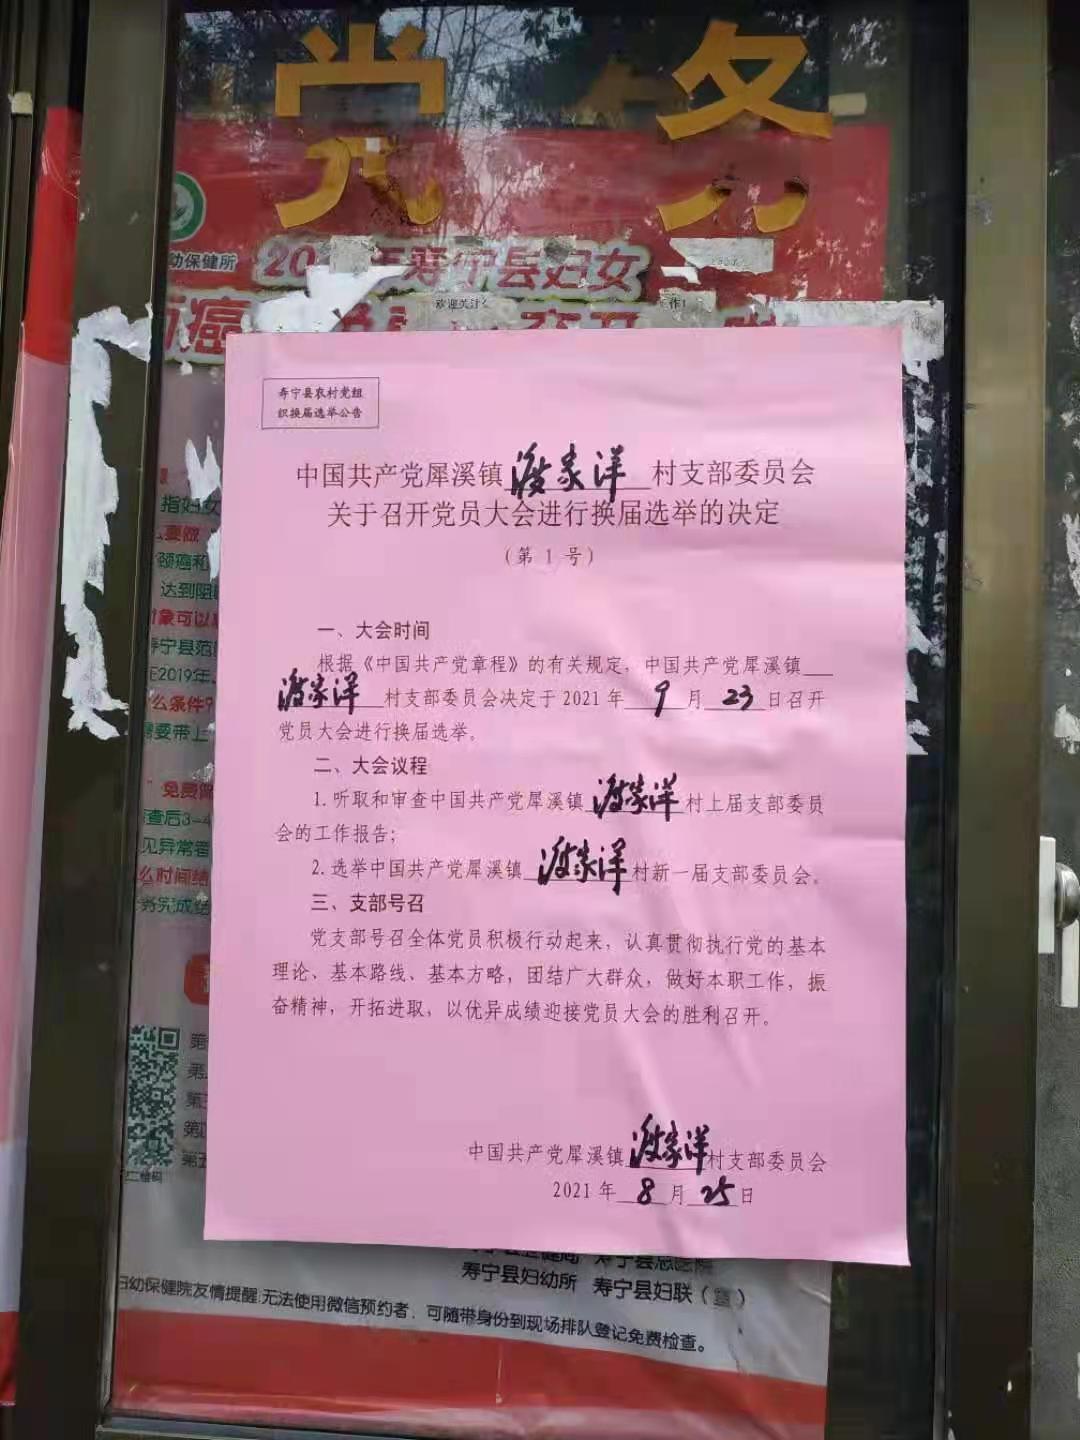 党 务
幼保健所
寿宁县妇女
癌
寿宁县农村党组
织换届选举公告
中国共产党犀溪镇渡家洋村支部委员会
关于召开党员大会进行换届选举的决定
（第 1 号）
一、大会时间
根据《中国共产党章程》的有关规定，中国共产党犀溪镇
渡家洋村支部委员会决定于 2021 年 9 月 23 日召开
党员大会进行换届选举。
二、大会议程
1. 听取和审查中国共产党犀溪镇渡家洋村上届支部委员
会的工作报告；
2. 选举中国共产党犀溪镇渡家洋村新一届支部委员会。
三、支部号召
党支部号召全体党员积极行动起来，认真贯彻执行党的基本
理论、基本路线、基本方略，团结广大群众，做好本职工作，振
奋精神，开拓进取，以优异成绩迎接党员大会的胜利召开。
中国共产党犀溪镇渡家洋村支部委员会
2021 年 8 月 25 日
指妇女
要做
颈癌和
达到阻
象可以
寿宁县范
2019年
么条件?
需要带上
免费
查后3-4
见异常者
么时间结
务完成
二维码
寿宁县妇幼所 寿宁县妇联（宣）
妇幼保健院友情提醒:无法使用微信预约者，可随带身份到现场排队登记免费检查。